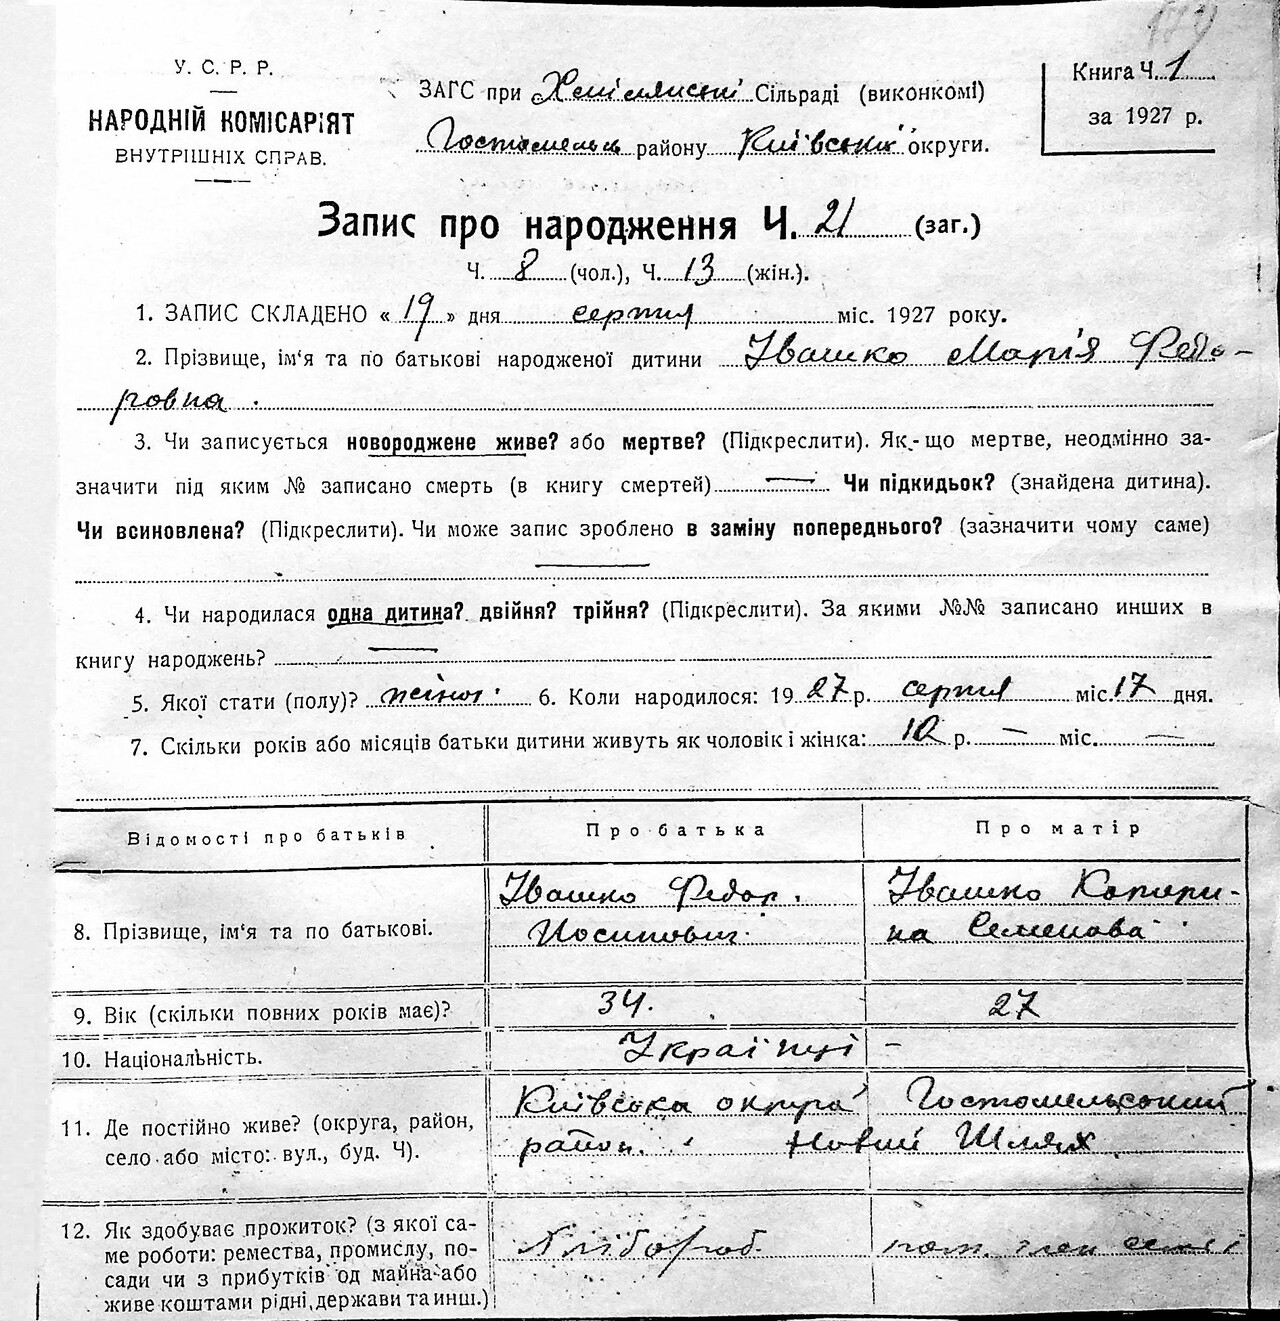 У. С. Р. Р.
НАРОДНІЙ КОМІСАРІЯТ
ВНУТРІШНІХ СПРАВ.
ЗАГС при Сільраді (виконкомі)
Гостомельск району Київської округи.
Книга Ч. 1
за 1927 р.
Запис про народження Ч. 21 (заг.)
Ч. 8 (чол.), Ч. 13 (жін.).
1. ЗАПИС СКЛАДЕНО « 19 » дня серпня міс. 1927 року.
2. Прізвище, ім‘я та по батькові народженої дитини Івашко Марія Федо-
ровна.
3. Чи записується новороджене живе? або мертве? (Підкреслити). Як-що мертве, неодмінно за-
значити під яким № записано смерть (в книгу смертей) — Чи підкидьок? (знайдена дитина).
Чи всиновлена? (Підкреслити). Чи може запис зроблено в заміну попереднього? (зазначити чому саме)
—
4. Чи народилася одна дитина? двійня? трійня? (Підкреслити). За якими №№ записано инших в
книгу народжень? —
5. Якої стати (полу)? жіноч. 6. Коли народилося: 1927 р. серпня міс. 17 дня.
7. Скільки років або місяців батьки дитини живуть як чоловік і жінка: 10 р. — міс. —
Відомості про батьків Про батька Про матір
8. Прізвище, ім‘я та по батькові.
Івашко Федор
Иосипович
Івашко Катери-
на Семенова
9. Вік (скільки повних років має)? 34. 27
10. Національність. Українці –
11. Де постійно живе? (округа, район,
село або місто: вул., буд. Ч).
Київська округа Гостомельський
район. Новий Шлях
12. Як здобуває прожиток? (з якої са-
ме роботи: ремества, промислу, по-
сади чи з прибутків од майна або
живе коштами рідні, держави та инш.)
Хлібороб. член семії